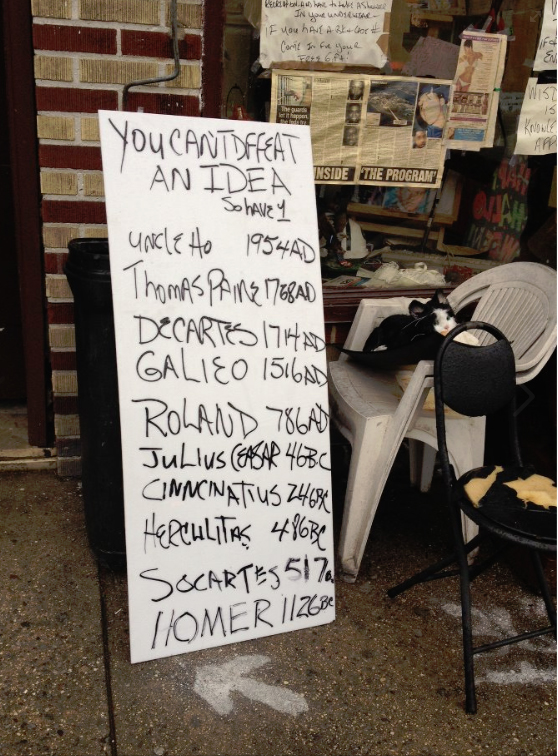 IN YOUR UNDERWEAR -
IF YOU HAVE A
COME IN FOR YOUR
FREE
The guards
let it happen.
INSIDE 'THE PROGRAM'
YOU CANT DEFEAT
AN IDEA
So HAVE 1
UNCLE HO 1954AD
THOMAS PAINE 1768AD
DECARTES 1714AD
GALIEO 1516AD
ROLAND 786AD
JULIUS CEASAR 46BC
CINNCINATIUS 246BC
HERCULITAS 486BC
SOCARTES 517
HOMER 1126BC